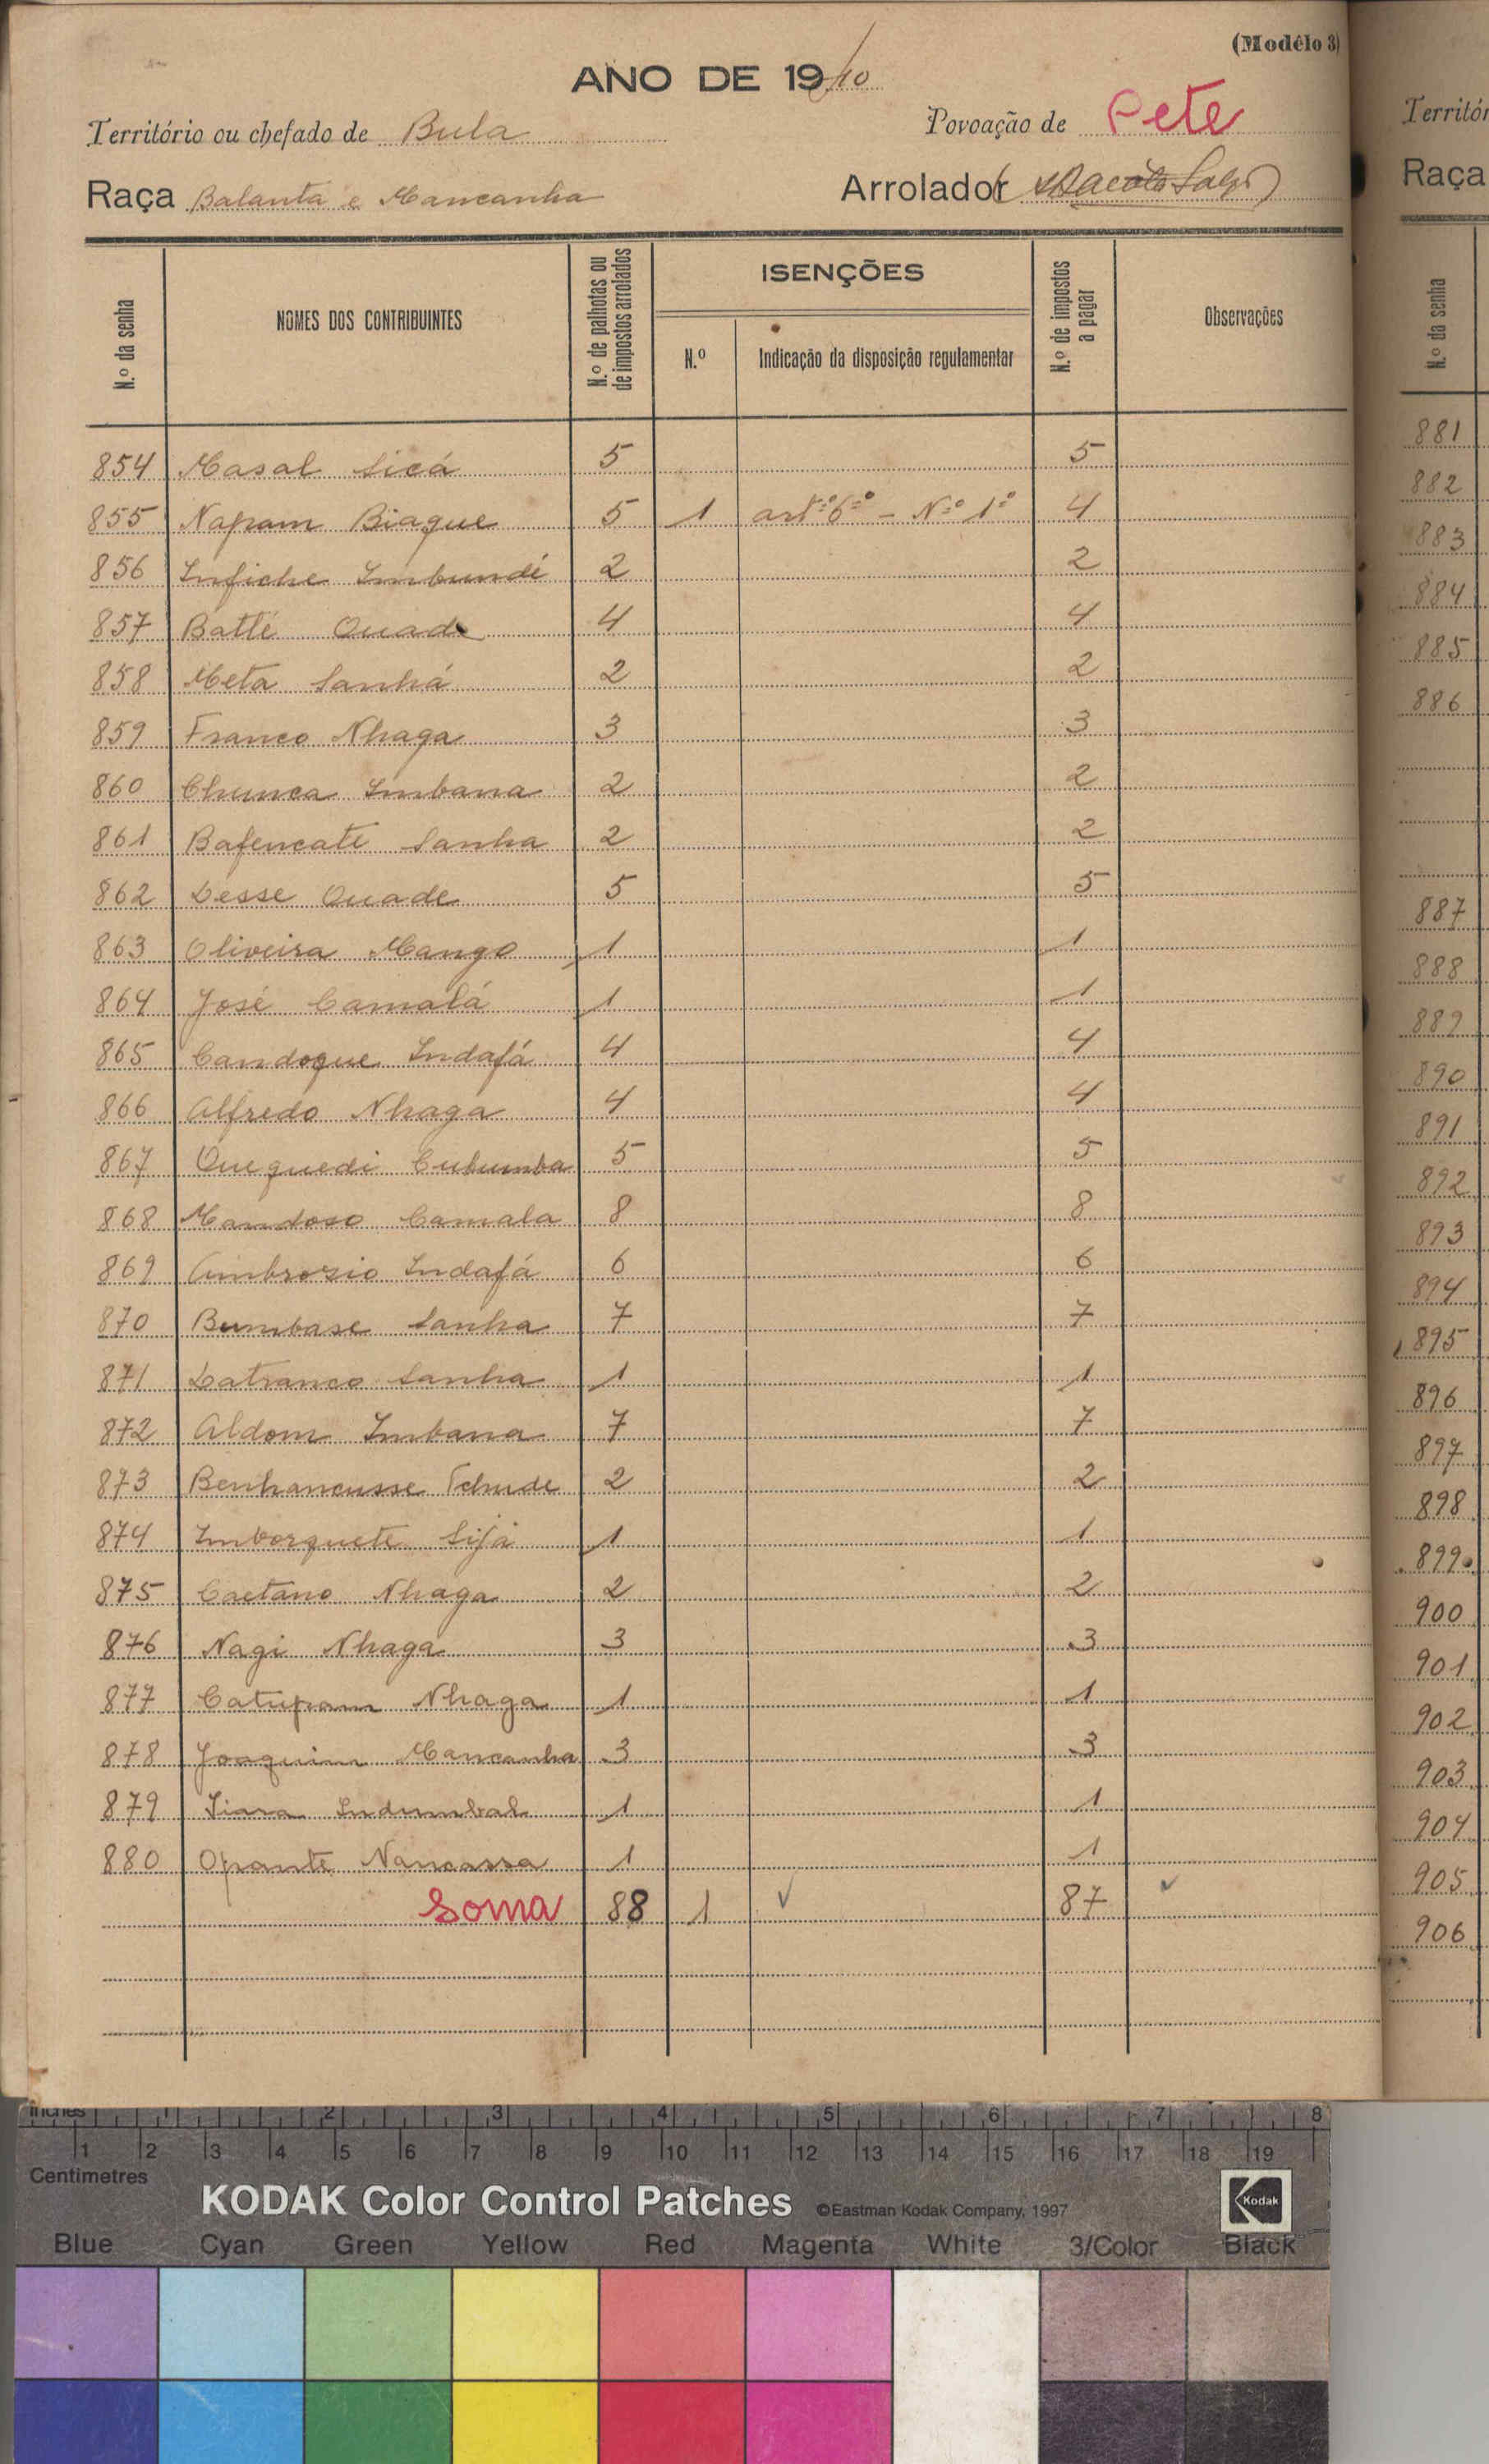 (Modêlo 3)
ANO DE 1940
Território ou chefado de Bula Povoação de Pete
Raça Balanta e Mancanha Arrolador
N.º da senha
NOMES DOS CONTRIBUINTES
N.º de palhotas ou de impostos arrolados
ISENÇÕES
N.º
Indicação da disposição regulamentar
N.º de impostos a pagar
Observações
854 Masal Sicá 5 5
855 Napam Biaque 5 1 artº 6º - Nº 1º 4
856 Infiche Imbundé 2 2
857 Batlé Quade 4 4
858 Meta Sanhá 2 2
859 Franco Nhaga 3 3
860 Chunca Imbana 2 2
861 Bafencate Sanha 2 2
862 Desse Quade 5 5
863 Oliveira Mango 1 1
864 José Camalá 1 1
865 Candoque Indafá 4 4
866 Alfredo Nhaga 4 4
867 Quequedi Cubumba 5 5
868 Mandoso Camala 8 8
869 Ambrozio Indafá 6 6
870 Bumbase Sanha 7 7
871 Datranco Sanha 1 1
872 Aldom Imbana 7 7
873 Benhancusse Tchude 2 2
874 Imborquete Sijá 1 1
875 Caetano Nhaga 2 2
876 Nagi Nhaga 3 3
877 Catupam Nhaga 1 1
878 Joaquim Mancanha 3 3
879 Siara Indumbal 1 1
880 Opante Nancassa 1 1
Soma 88 1 87
Territór
Raça
N.º da senha
881
882
883
884
885
886
887
888
889
890
891
892
893
894
895
896
897
898
899
900
901
902
903
904
905
906
inches 1 2 3 4 5 6 7 8
1 2 3 4 5 6 7 8 9 10 11 12 13 14 15 16 17 18 19
Centimetres
KODAK Color Control Patches ©Eastman Kodak Company, 1997 Kodak
Blue Cyan Green Yellow Red Magenta White 3/Color Black